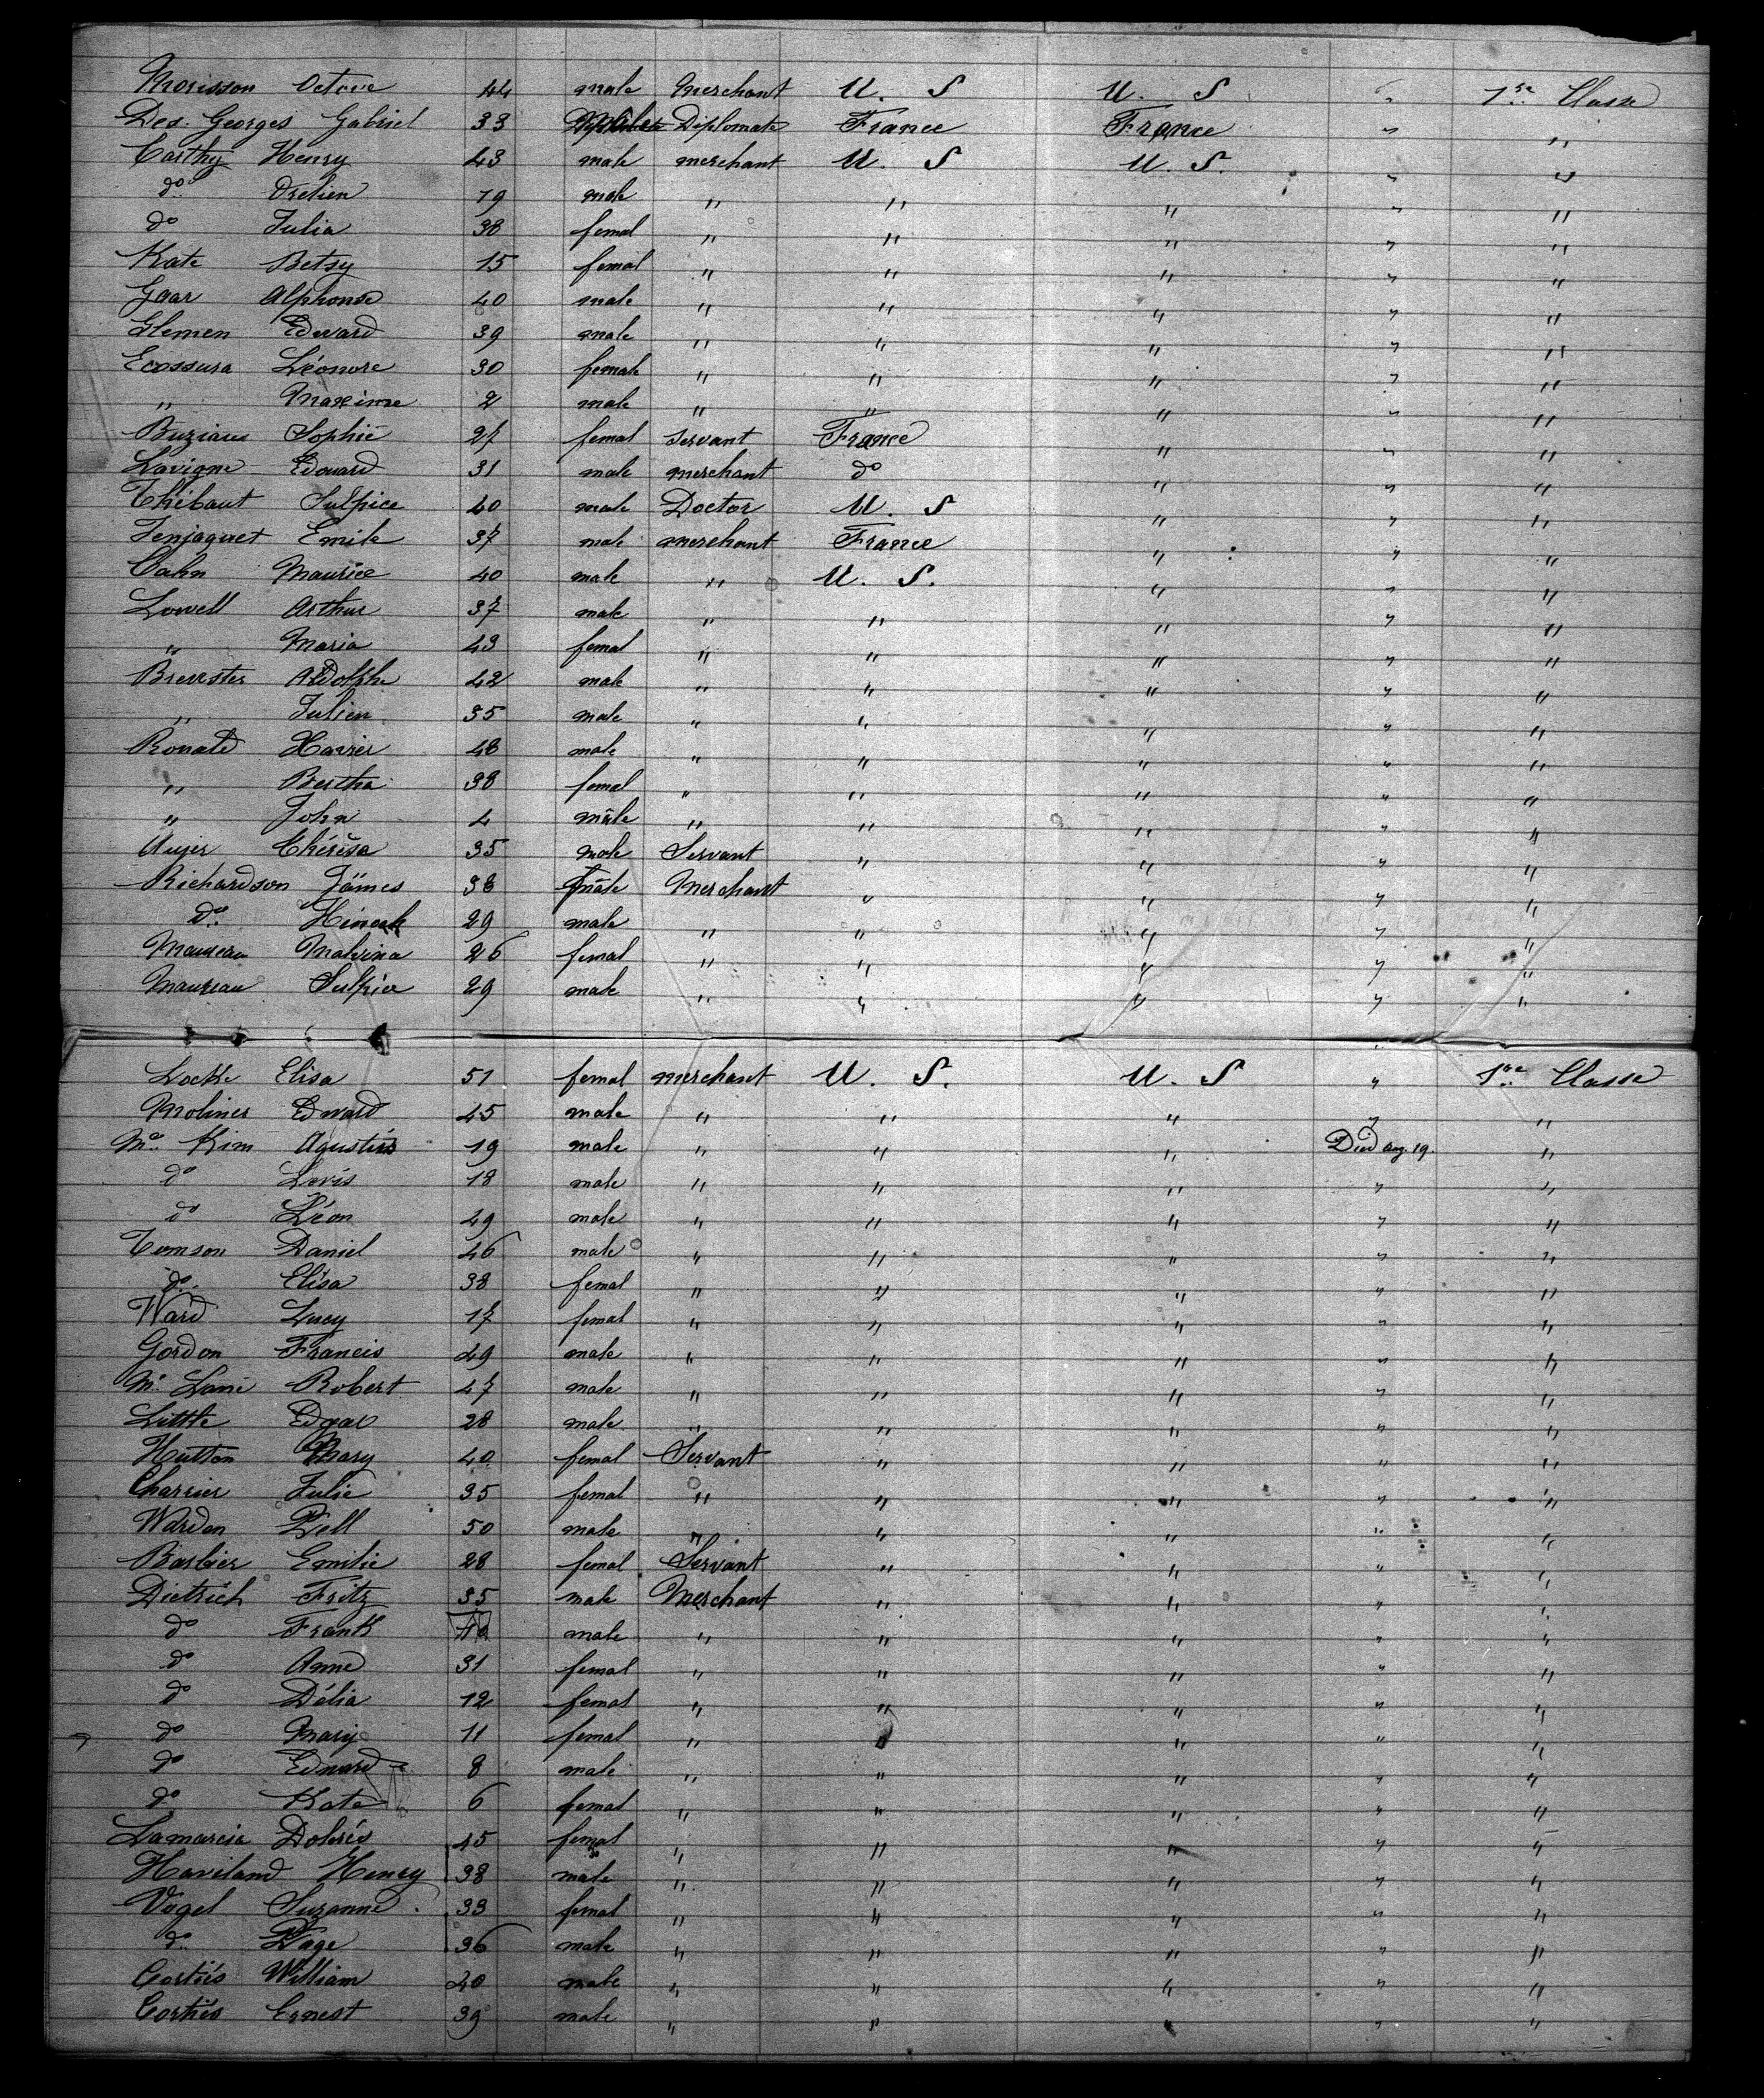 Morisson Octave 44 male Merchant U. S U. S " 1re Classe
Des. Georges Gabriel 33 Male Diplomate France France " "
Carthy Henry 43 male merchant U. S U. S. " "
do Orelien 19 male " " " " "
do Julia 38 femal " " " " "
Kate Betsy 15 femal " " " " "
Gaar Alphonse 40 male " " " " "
Glemen Edward 39 male " " " " "
Ecossura Léonore 30 female " " " " "
" Maxime 2 male " " " " "
Buziau Sophie 27 femal servant France " " "
Lavigne Edouard 31 male merchant do " " "
Thébaut Sulpice 40 male Doctor U. S " " "
Jenjaquet Emile 37 male merchant France " " "
Cahn Maurice 40 male " U. S. " " "
Lowell Arthur 37 male " " " " "
" Maria 43 femal " " " " "
Brewster Addolphe 42 male " " " " "
" Julien 35 male " " " " "
Ronald Xavier 48 male " " " " "
" Bertha 38 femal " " " " "
" John 4 male " " " " "
Aujer Thérèse 35 male Servant " " " "
Richardson James 38 male Merchant " " " "
do 29 male " " " " "
Maureau Malvina 26 femal " " " " "
Maureau Sulpice 29 male " " " " "
Locke Elisa 51 femal merchant U. S. U. S " 1re Classe
Moliner Edward 45 male " " " " "
Mc Kim Agustus 19 male " " " Died Aug. 19. "
do Lovis 18 male " " " " "
do Léon 49 male " " " " "
Tomson Daniel 46 male " " " " "
do Elisa 38 femal " " " " "
Ward Lucy 17 femal " " " " "
Gordon Francis 49 male " " " " "
Mc Lane Robert 47 male " " " " "
Little Edgar 28 male " " " " "
Hutton Mary 40 femal Servant " " " "
Charrier Julie 35 femal " " " " "
Warden Pell 50 male " " " " "
Barbier Emilie 28 femal Servant " " " "
Dietrich Fritz 35 male Merchant " " " "
do Frank male " " " " "
do Anne 31 femal " " " " "
do Délia 12 femal " " " " "
do Mary 11 femal " " " "
do Edward 8 male " " " " "
do Kate 6 femal " " " " "
Lamarcia Dolorés 45 femal " " " " "
Haviland Henry 38 male " " " " "
Vogel Suzanne 33 femal " " " " "
do Page 36 male " " " " "
Cortiés William 40 male " " " " "
Cortiés Ernest 39 male " " " " "